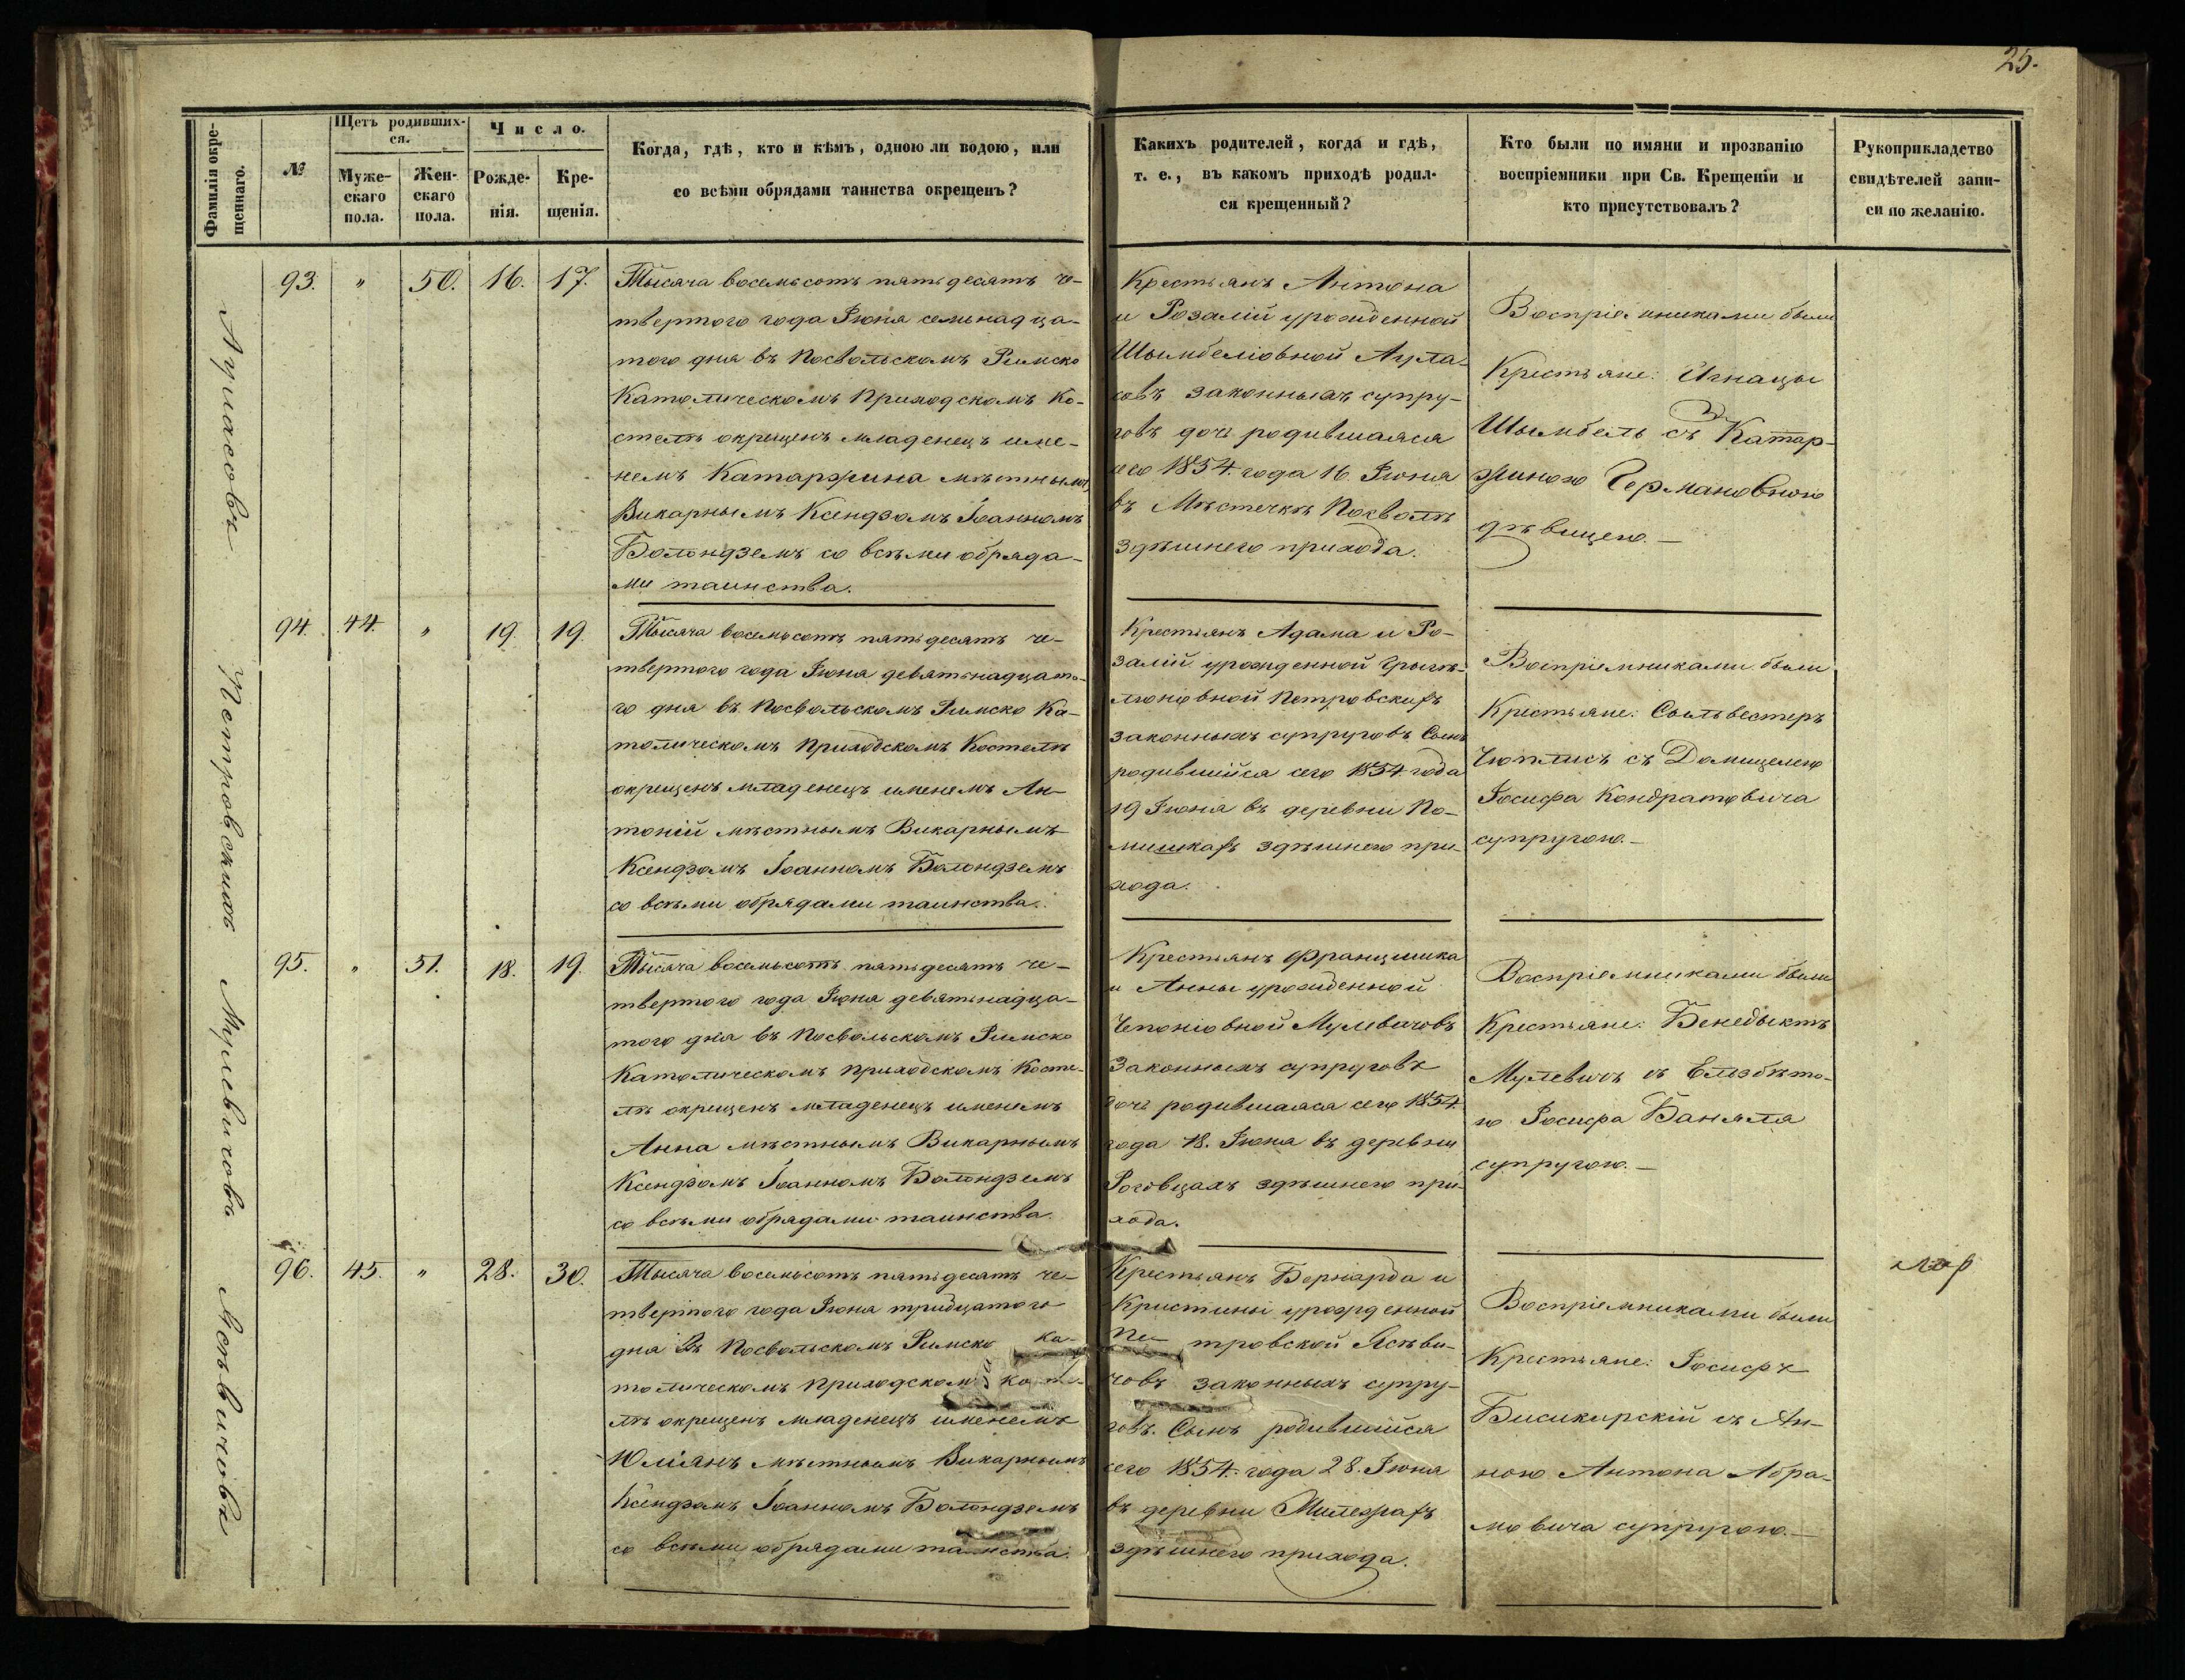 25.
Фамилія окре-
щеннаго.
№
Щетъ родивших-
ся.
Муже-
скаго
пола.
Жен-
скаго
пола.
Число.
Рожде-
нія.
Кре-
щенія.
Когда, гдѣ, кто и кѣмъ, одною ли водою, или
со всѣми обрядами таинства окрещенъ?
Какихъ родителей, когда и гдѣ,
т. е., въ какомъ приходѣ родил-
ся крещенный?
Кто были по имяни и прозванію
воспріемники при Св. Крещеніи и
кто присутствовалъ?
Рукоприкладство
свидѣтелей запи-
си по желанію.
93. " 50. 16. 17.
Тысяча восемьсотъ пятьдесятъ че-
твертого года Іюня семьнадца-
того дня въ Посвольскомъ Римско
Католическомъ Приходскомъ Ко-
стелѣ окрещенъ младенецъ име-
немъ Катаржина мѣстнымъ
Викарнымъ Ксендзомъ Іоанномъ
Болондземъ со всѣми обряда-
ми таинства.
Крестьянъ Антона
и Розаліи урожденной
Шымбеліовной
законныхъ супру-
говъ дочь родившаяся
сего 1854 года 16 Іюня
въ Мѣстечкѣ Посволѣ
здѣшнего прихода.
Воспріемниками были
Крестьяне: Игнацы
Шымбель съ Катар-
жиною Германовною
дѣвицею.—
94. 44. " 19. 19.
Петровскихъ
Тысяча восемьсотъ пятьдесятъ че-
твертого года Іюня девятьнадцато-
го дня въ Посвольскомъ Римско Ка-
толическомъ Приходскомъ Костелѣ
окрещенъ младенецъ именемъ Ан-
тоній мѣстнымъ Викарнымъ
Ксендзомъ Іоанномъ Болондземъ
со всѣми обрядами таинства.
Крестьянъ Адама и Ро-
заліи урожденной
Петровскихъ
законныхъ супруговъ Сынъ
родившійся сего 1854 года
19 Іюня въ деревни По-
мишкахъ здѣшнего при-
хода.
Воспріемниками были
Крестьяне: Сыльвестеръ
съ Домицелею
Іосифа Кондратовича
супругою.—
95. " 51. 18. 19.
Мулевичовъ
Тысяча восемьсотъ пятьдесятъ че-
твертого года Іюня девятьнадца-
того дня въ Посвольскомъ Римско
Католическомъ Приходскомъ Косте-
лѣ окрещенъ младенецъ именемъ
Анна мѣстнымъ Викарнымъ
Ксендзомъ Іоанномъ Болондземъ
со всѣми обрядами таинства.
Крестьянъ Францишка
и Анны урожденной
Чепоніовной Мулевичовъ
Законныхъ супруговъ
дочь родившаяся сего 1854
года 18. Іюня въ деревни
Роговцахъ здѣшнего при-
хода.
Воспріемниками были
Крестьяне: Бенедыктъ
Мулевичъ съ Елзбѣто-
ю Іосифа Баняля
супругою.—
96. 45. " 28. 30.
Ясѣвичовъ
Тысяча восемьсотъ пятьдесятъ че-
твертого года Іюня тридцатого
дня въ Посвольскомъ Римско Ка-
толическомъ Приходскомъ Косте-
лѣ окрещенъ младенецъ именемъ
Юліянъ мѣстнымъ Викарнымъ
Ксендзомъ Іоанномъ Болондземъ
со всѣми обрядами таинства.
Крестьянъ Бернарда и
Кристины урожденной
Пе-тровской Ясѣви-
човъ законныхъ супру-
говъ. Сынъ родившійся
сего 1854. года 28. Іюня
въ деревни Милежахъ
здѣшнего прихода.
Воспріемниками были
Крестьяне: Іосифъ
съ Ан-
ною Антона Абра-
мовича супругою.—